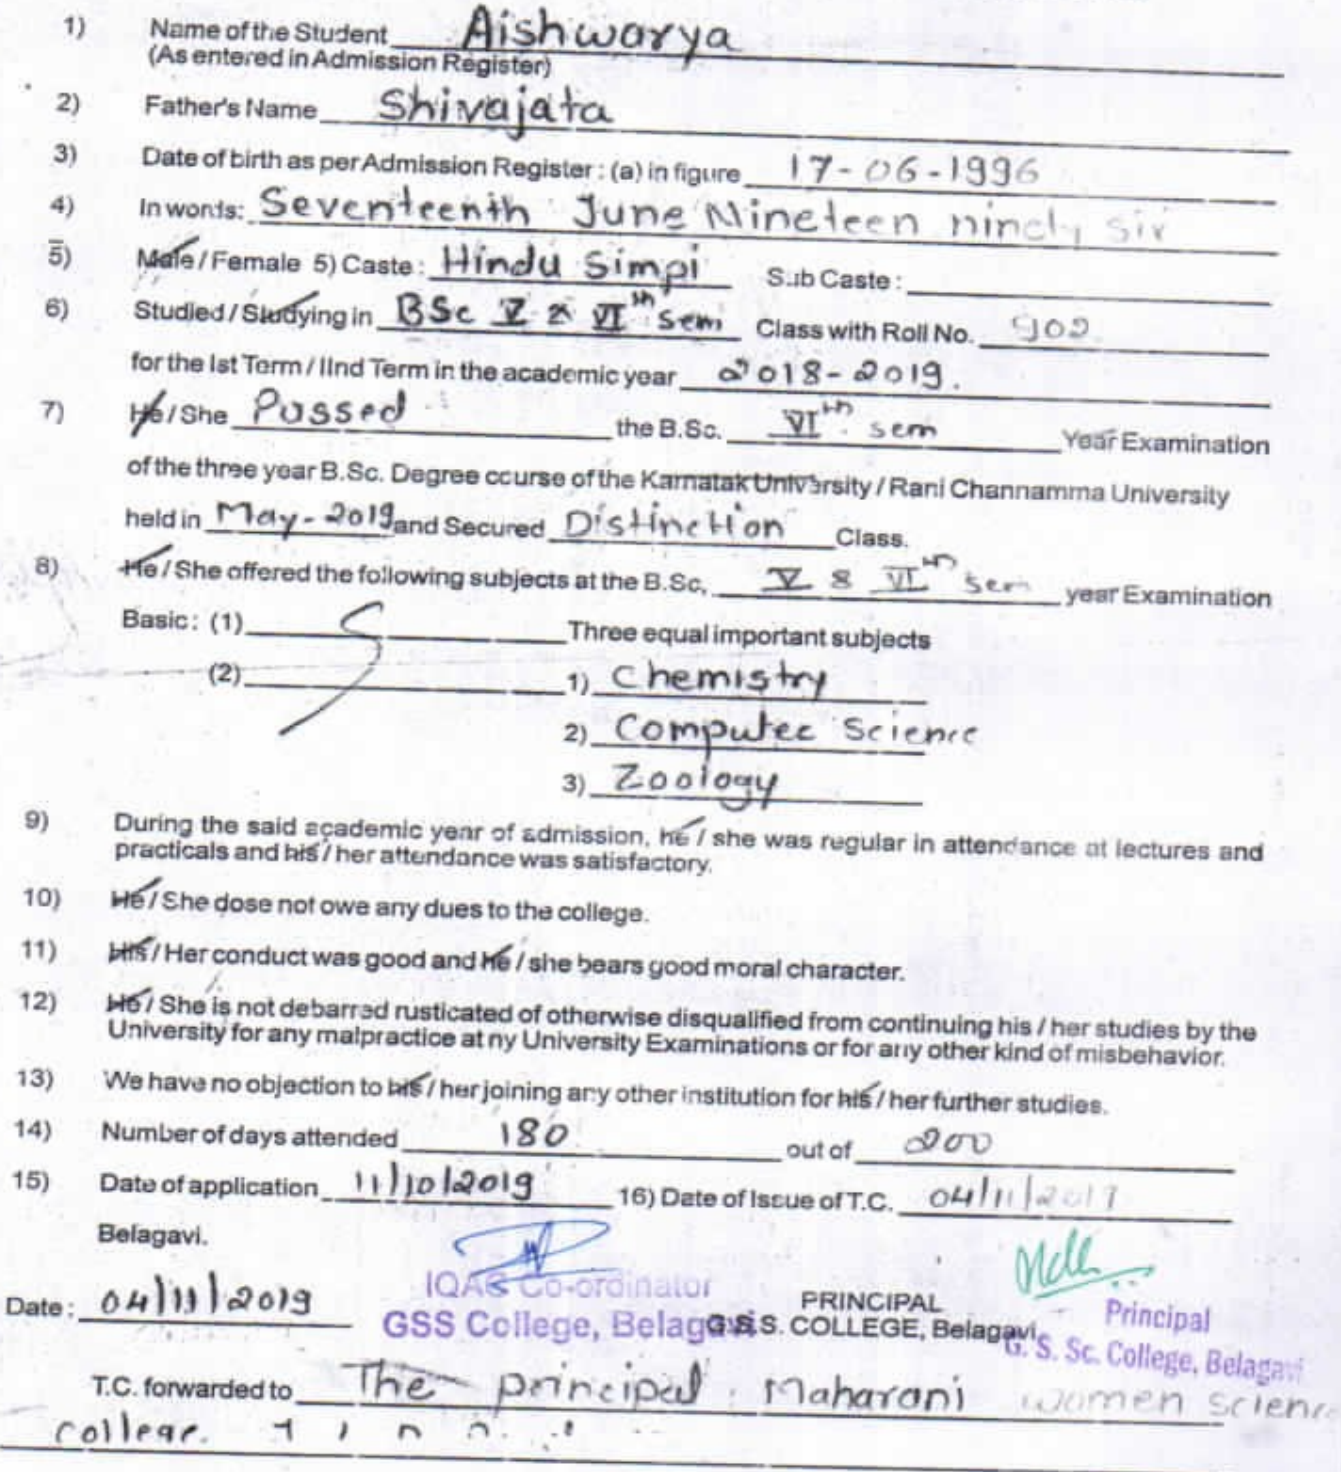 1) Name of the Student Aishwarya
(As entered in Admission Register)
2) Father's Name Shivajata
3) Date of birth as per Admission Register : (a) in figure 17-06-1996
4) In words: Seventeenth June Nineteen ninety six
5) Male / Female 5) Caste : Hindu Simpi Sub Caste :
6) Studied / Studying in BSc V & VIth sem Class with Roll No. 902
for the Ist Term / IInd Term in the academic year 2018-2019.
7) He / She Passed the B.Sc. VIth sem Year Examination
of the three year B.Sc. Degree course of the Karnatak University / Rani Channamma University
held in May-2019 and Secured Distinction Class.
8) He / She offered the following subjects at the B.Sc, V & VIth sem year Examination
Basic : (1) Three equal important subjects
(2) 1) Chemistry
2) Computer Science
3) Zoology
9) During the said academic year of admission, he / she was regular in attendance at lectures and
practicals and his / her attendance was satisfactory.
10) He / She dose not owe any dues to the college.
11) His / Her conduct was good and he / she bears good moral character.
12) He / She is not debarred rusticated of otherwise disqualified from continuing his / her studies by the
University for any malpractice at ny University Examinations or for any other kind of misbehavior.
13) We have no objection to his / her joining any other institution for his / her further studies.
14) Number of days attended 180 out of 200
15) Date of application 11/10/2019 16) Date of Issue of T.C. 04/11/2019
Belagavi.
IQAC Co-ordinator
GSS College, Belagavi
Date : 04/11/2019
PRINCIPAL
G.S.S. COLLEGE, Belagavi
Principal
G. S. Sc. College, Belagavi
T.C. forwarded to The principal, Maharani women science
college.